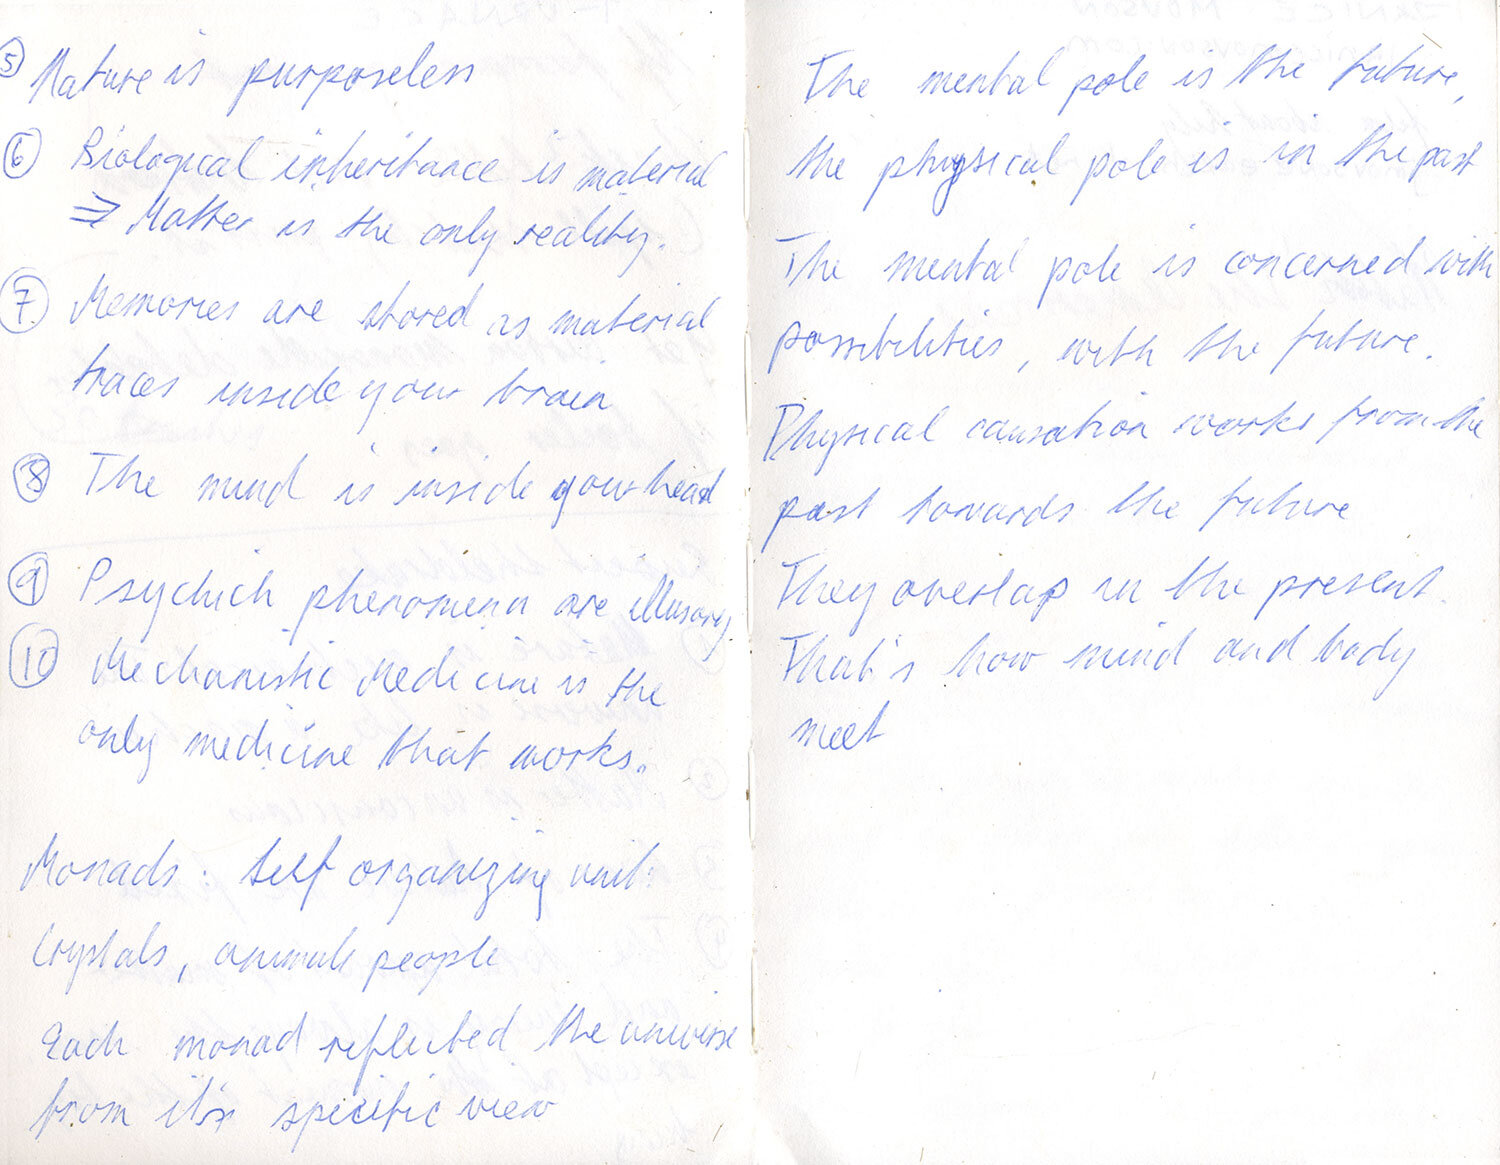 ⑤ Nature is purposeless
⑥ Biological inheritance is material
⇒ Matter is the only reality.
⑦ Memories are stored as material
traces inside your brain
⑧ The mind is inside your head
⑨ Psychich phenomena are illusory
⑩ Mechanistic Medicine is the
only medicine that works.
Monads: Self organizing units
Crystals, animals people
Each monad reflected the universe
from it's specific view
The mental pole is the future,
the physical pole is in the past
The mental pole is concerned with
possibilities, with the future.
Physical causation works from the
past towards the future
They overlap in the present.
That's how mind and body
meet